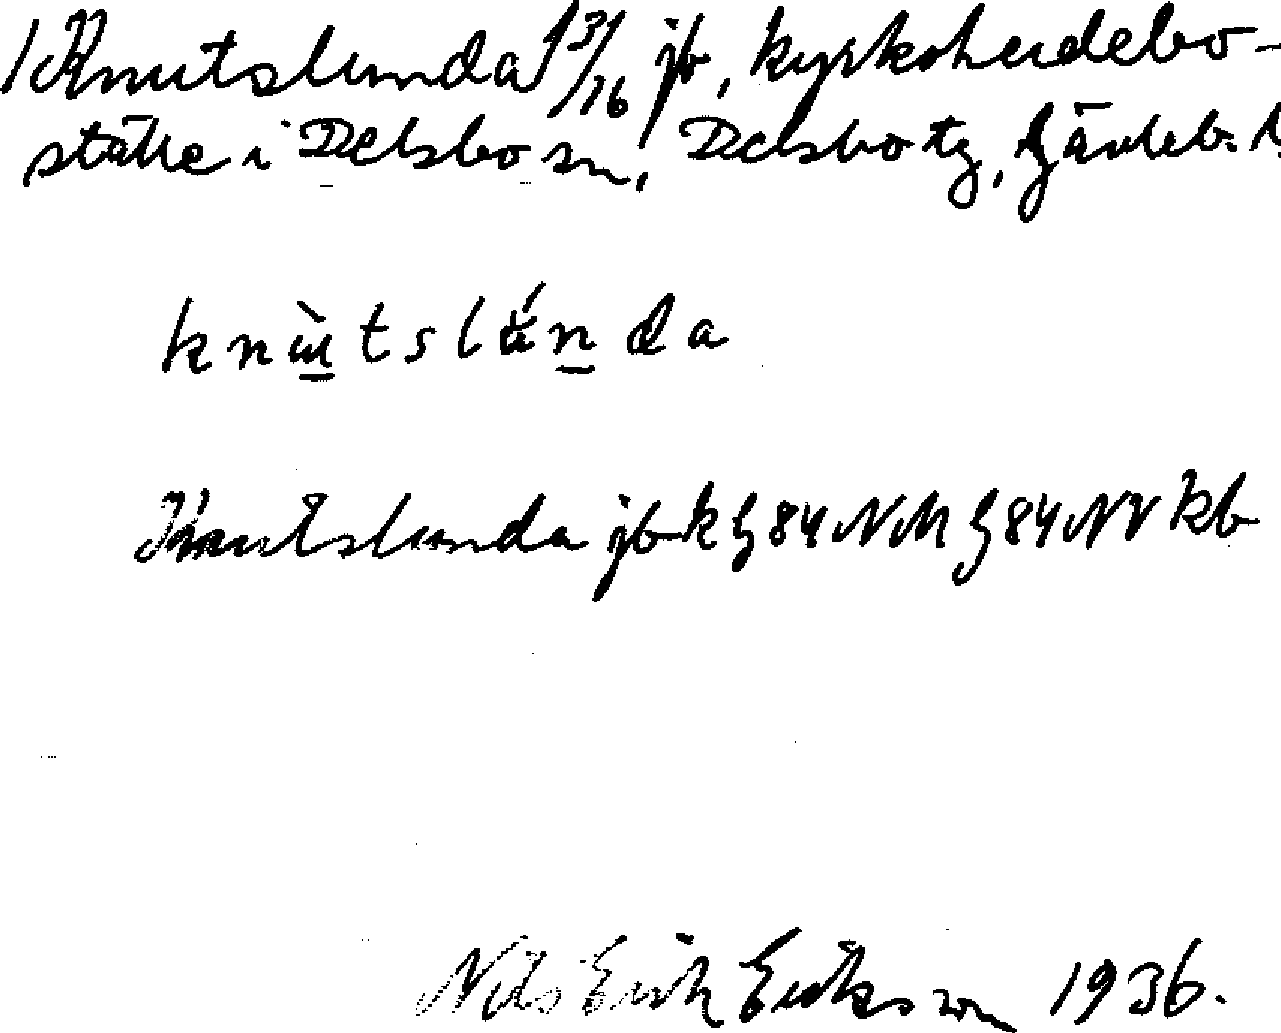 1 Knutslunda 1 3/16 jb, kyrkoherdebo-
ställe i Delsbo sn, Delsbo tg, Gävleb. l.
knùtslúnda
Knutslunda jb k G 84 NM G 84 NV kb
Nils Erik Eriksson 1936.